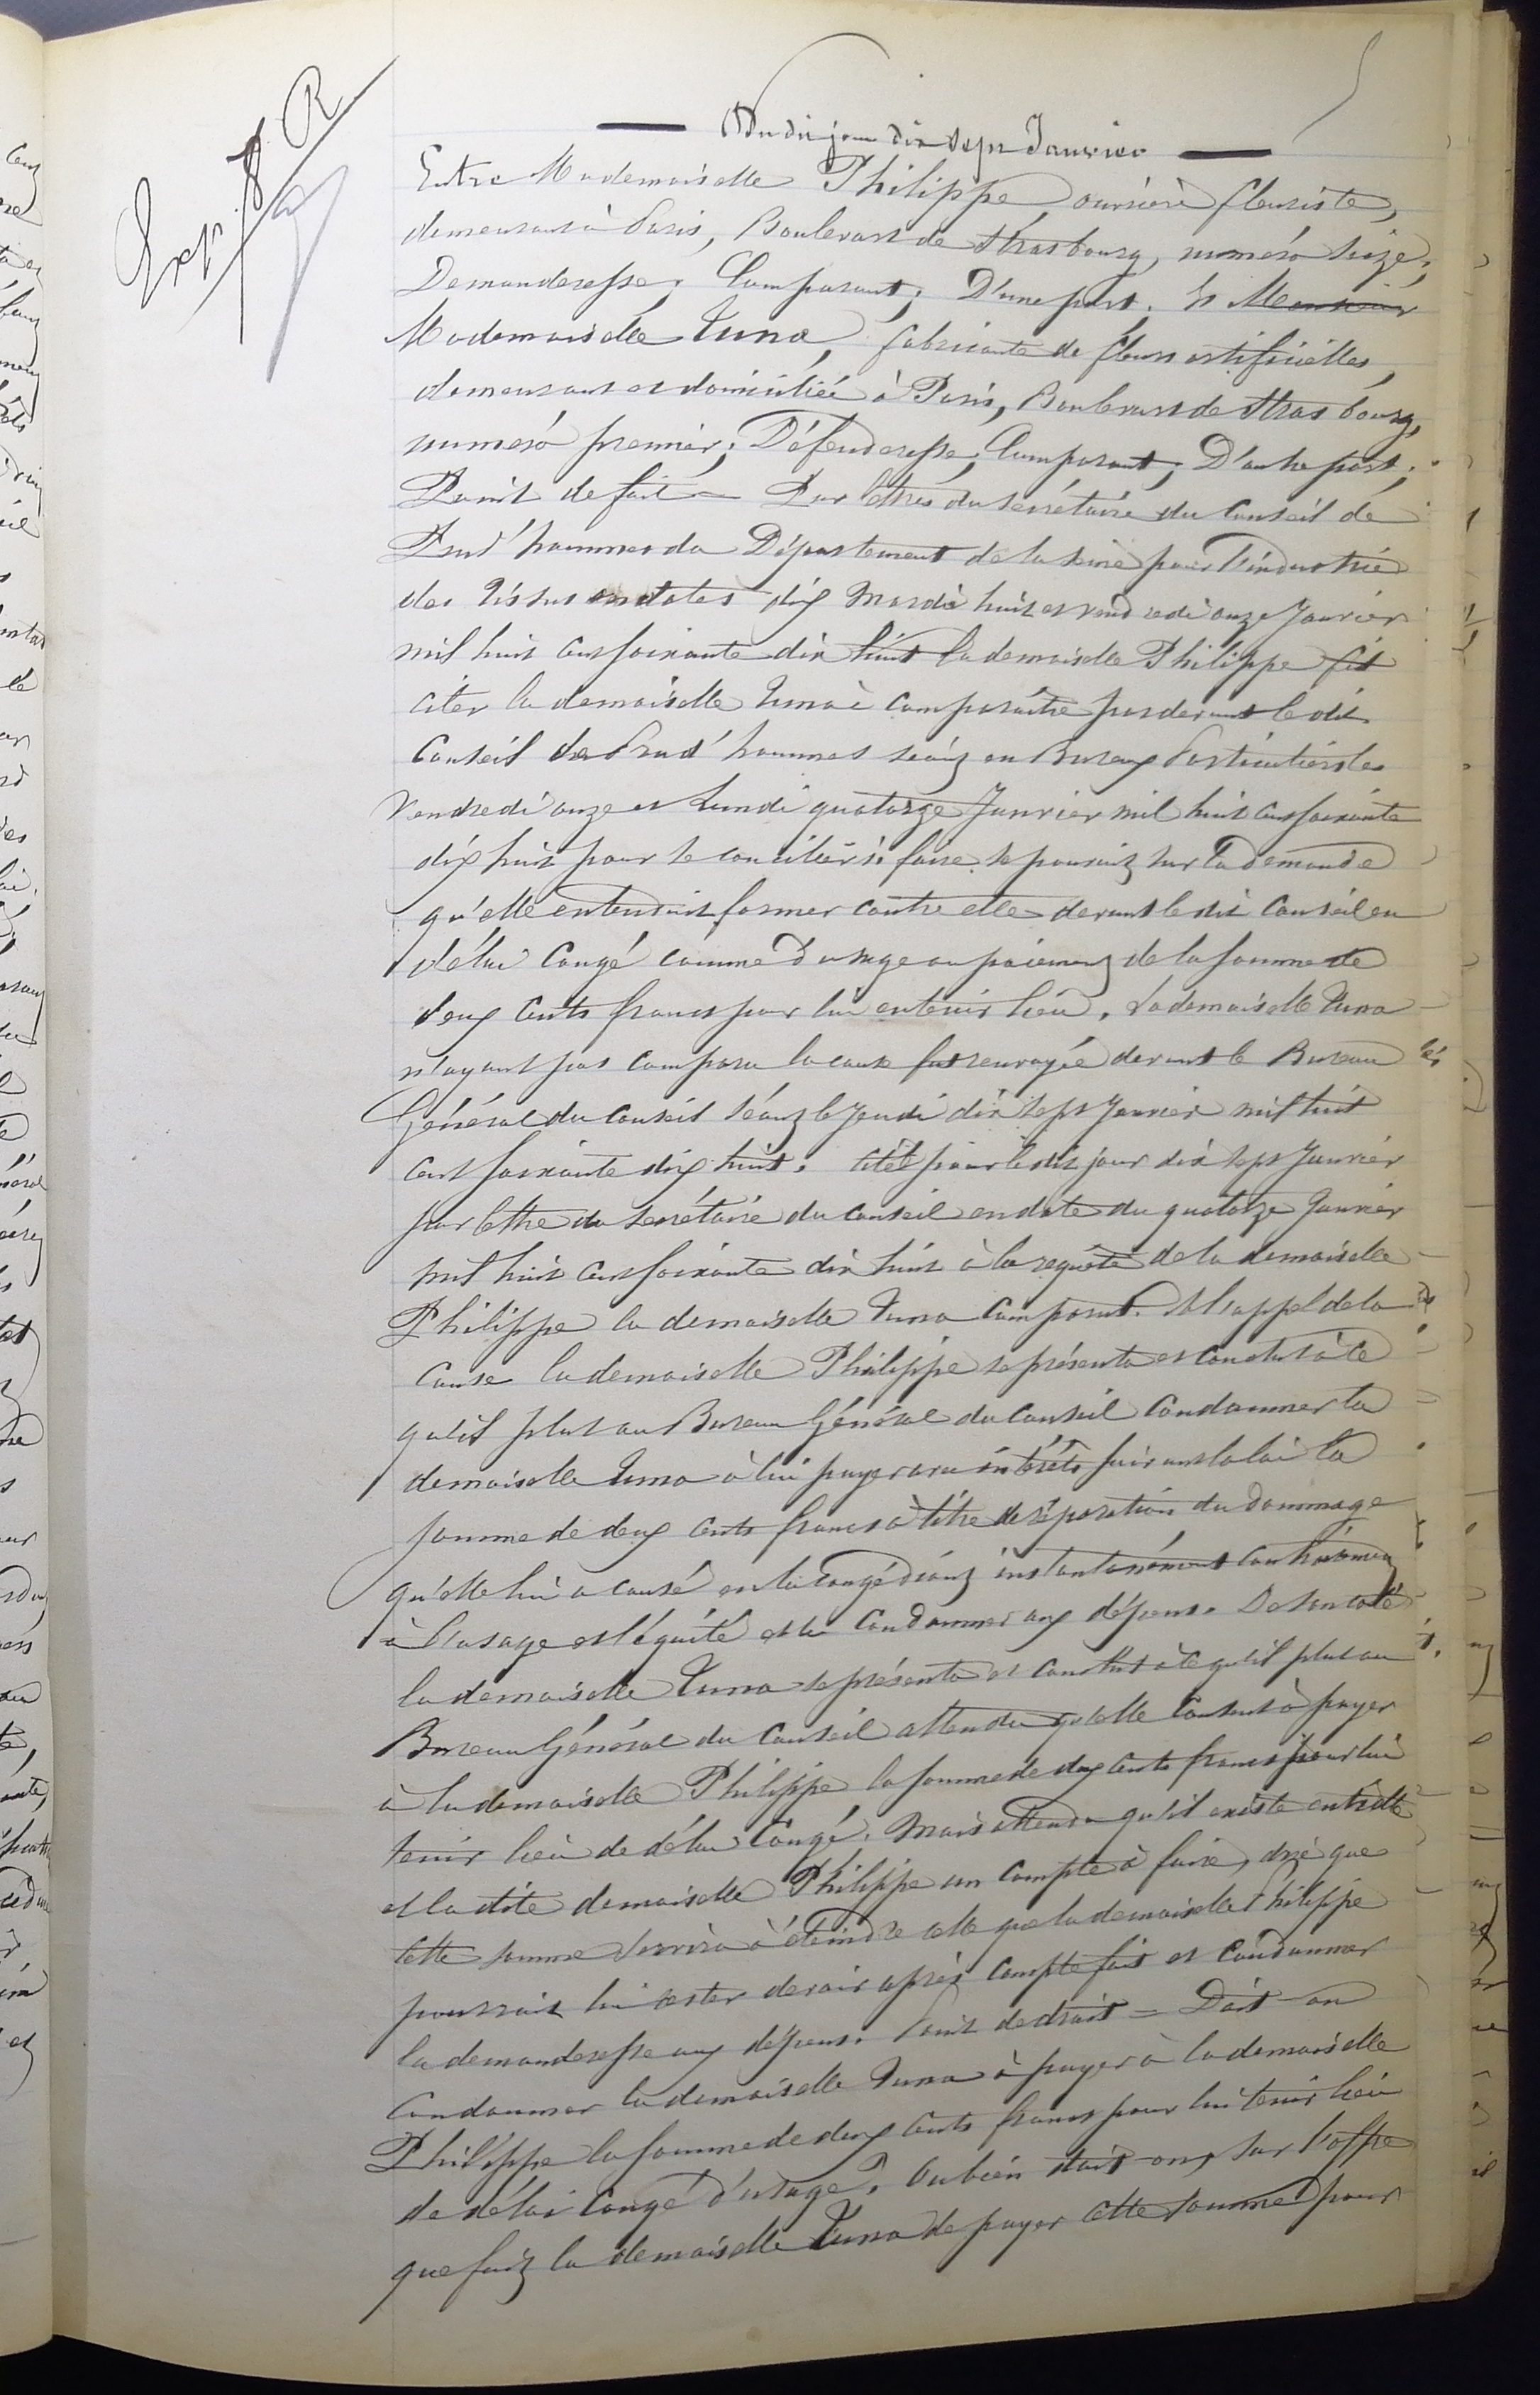 Du dit jour dix sept Janvier
Entre Mademoiselle Philippe, ouvrière fleuriste,
demeurant à Paris, Boulevart de Strasbourg, numéro seize;
Demanderesse; Comparant; D'une part; Et Monsieur
Mademoiselle Tuna, fabricante de fleurs artificielles,
demeurant et domiciliée à Paris, Boulevart de Strasbourg,
numéro premier; Défenderesse; Comparant; D'autre part;
Point de fait = Par lettres du secrétaire du Conseil de
Prud'hommes du Département de la Seine pour l'industrie
des Tissus en dates des Mardi huit et vendredi onze Janvier
mil huit cent soixante dix huit la demoiselle Philippe fit
citer la demoiselle Tuna à comparaître par devant le dit
Conseil de Prud'hommes séant en Bureaux Particuliers les
Vendredi onze et Lundi quatorze Janvier mil huit cent soixante
dix huit pour se concilier si faire se pouvait sur la demande
qu'elle entendait former contre elle devant le dit Conseil en
délai Congé comme d'usage ou paiement de la somme de
deux cents francs pour lui en tenir lieu. La demoiselle Tuna
n'ayant pas comparu la cause fut renvoyée devant le Bureau
Général du Conseil séant le Jeudi dix sept Janvier mil huit
cent soixante dix huit. Citée pour le dit jour dix sept Janvier
par lettre du secrétaire du Conseil en date du quatorze Janvier
mil huit cent soixante dix huit à la requête de la demoiselle
Philippe la demoiselle Tuna comparut. A l'appel de la
cause la demoiselle Philippe se présenta et conclut à ce
qu'il plut au Bureau Général du Conseil Condamner la
demoiselle Tuna à lui payer avec intérêts suivant la loi la
somme de deux cents francs à titre de réparation du dommage
qu'elle lui a causé en la congédiant instantanément contrairement
à l'usage et l'équité et la Condamner aux dépens. De son coté
la demoiselle Tuna se présenta et conclut à ce qu'il plut au
Bureau Général du Conseil attendu qu'elle consent à payer
à la demoiselle Philippe la somme de deux cents francs pour lui
tenir lieu de délai Congé. Mais attendu qu'il existe entr'elle
et la dite demoiselle Philippe un compte à faire, dire que
cette somme servira à éteindre celle que la demoiselle Philippe
pourrait lui rester devoir après compte fait et condamner
la demanderesse aux dépens. Point de droit = Doit-on
Condamner la demoiselle Tuna à payer à la demoiselle
Philippe la somme de deux cents francs pour lui tenir lieu
de délai Congé d'usage. Ou bien doit-on, sur l'offre
que fait la demoiselle Tuna de payer cette somme pour